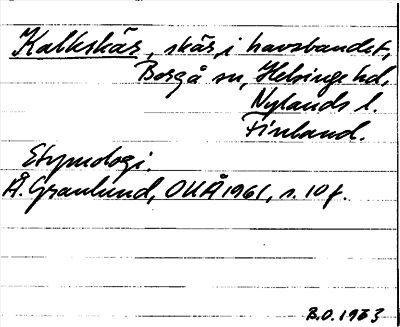 Kalkskär, skär i havsbandet,
Borgå sn, Helsinge hd,
Nylands l.
Finland.
Etymologi.
Å. Granlund, OUÅ 1961, s. 10 f.
B.O. 1963